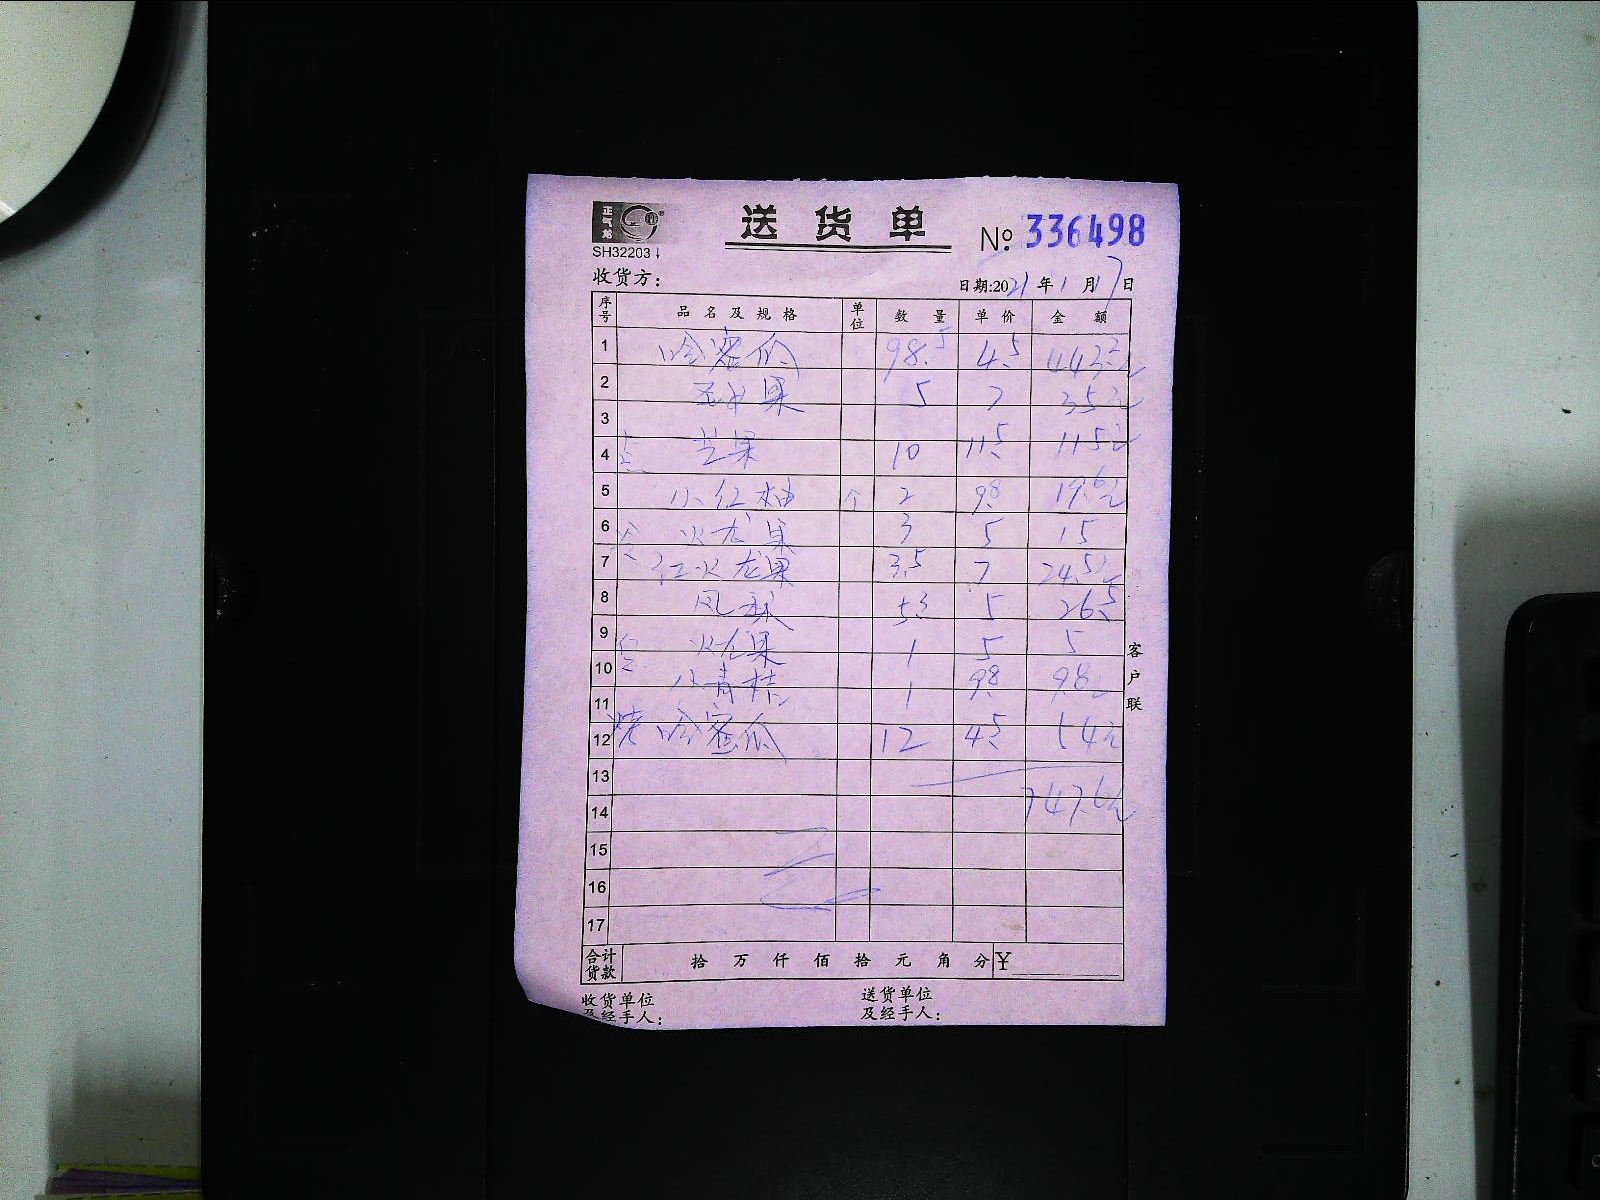 正气龙
送货单
№ 336498
SH32203
收货方：
日期:2021年1月17日
序号 品名及规格 单位 数量 单价 金额
1 哈密瓜 98.5 4.5 443.2元
2 果 5 7 35元
3
4 芒果 10 11.5 115元
5 小红柚 个 2 9.8 19.6元
6 火龙果 3 5 15
7 红火龙果 3.5 7 24.5元
8 凤梨 5.3 5 26.5
9 火龙果 1 5 5
10 小青桔 1 9.8 9.8元
11
12 烤 哈蜜瓜 12 4.5 54元
13
747.6元
14
15
16
17
客户联
合计货款 拾 万 仟 佰 拾 元 角 分 ¥
收货单位
及经手人：
送货单位
及经手人：